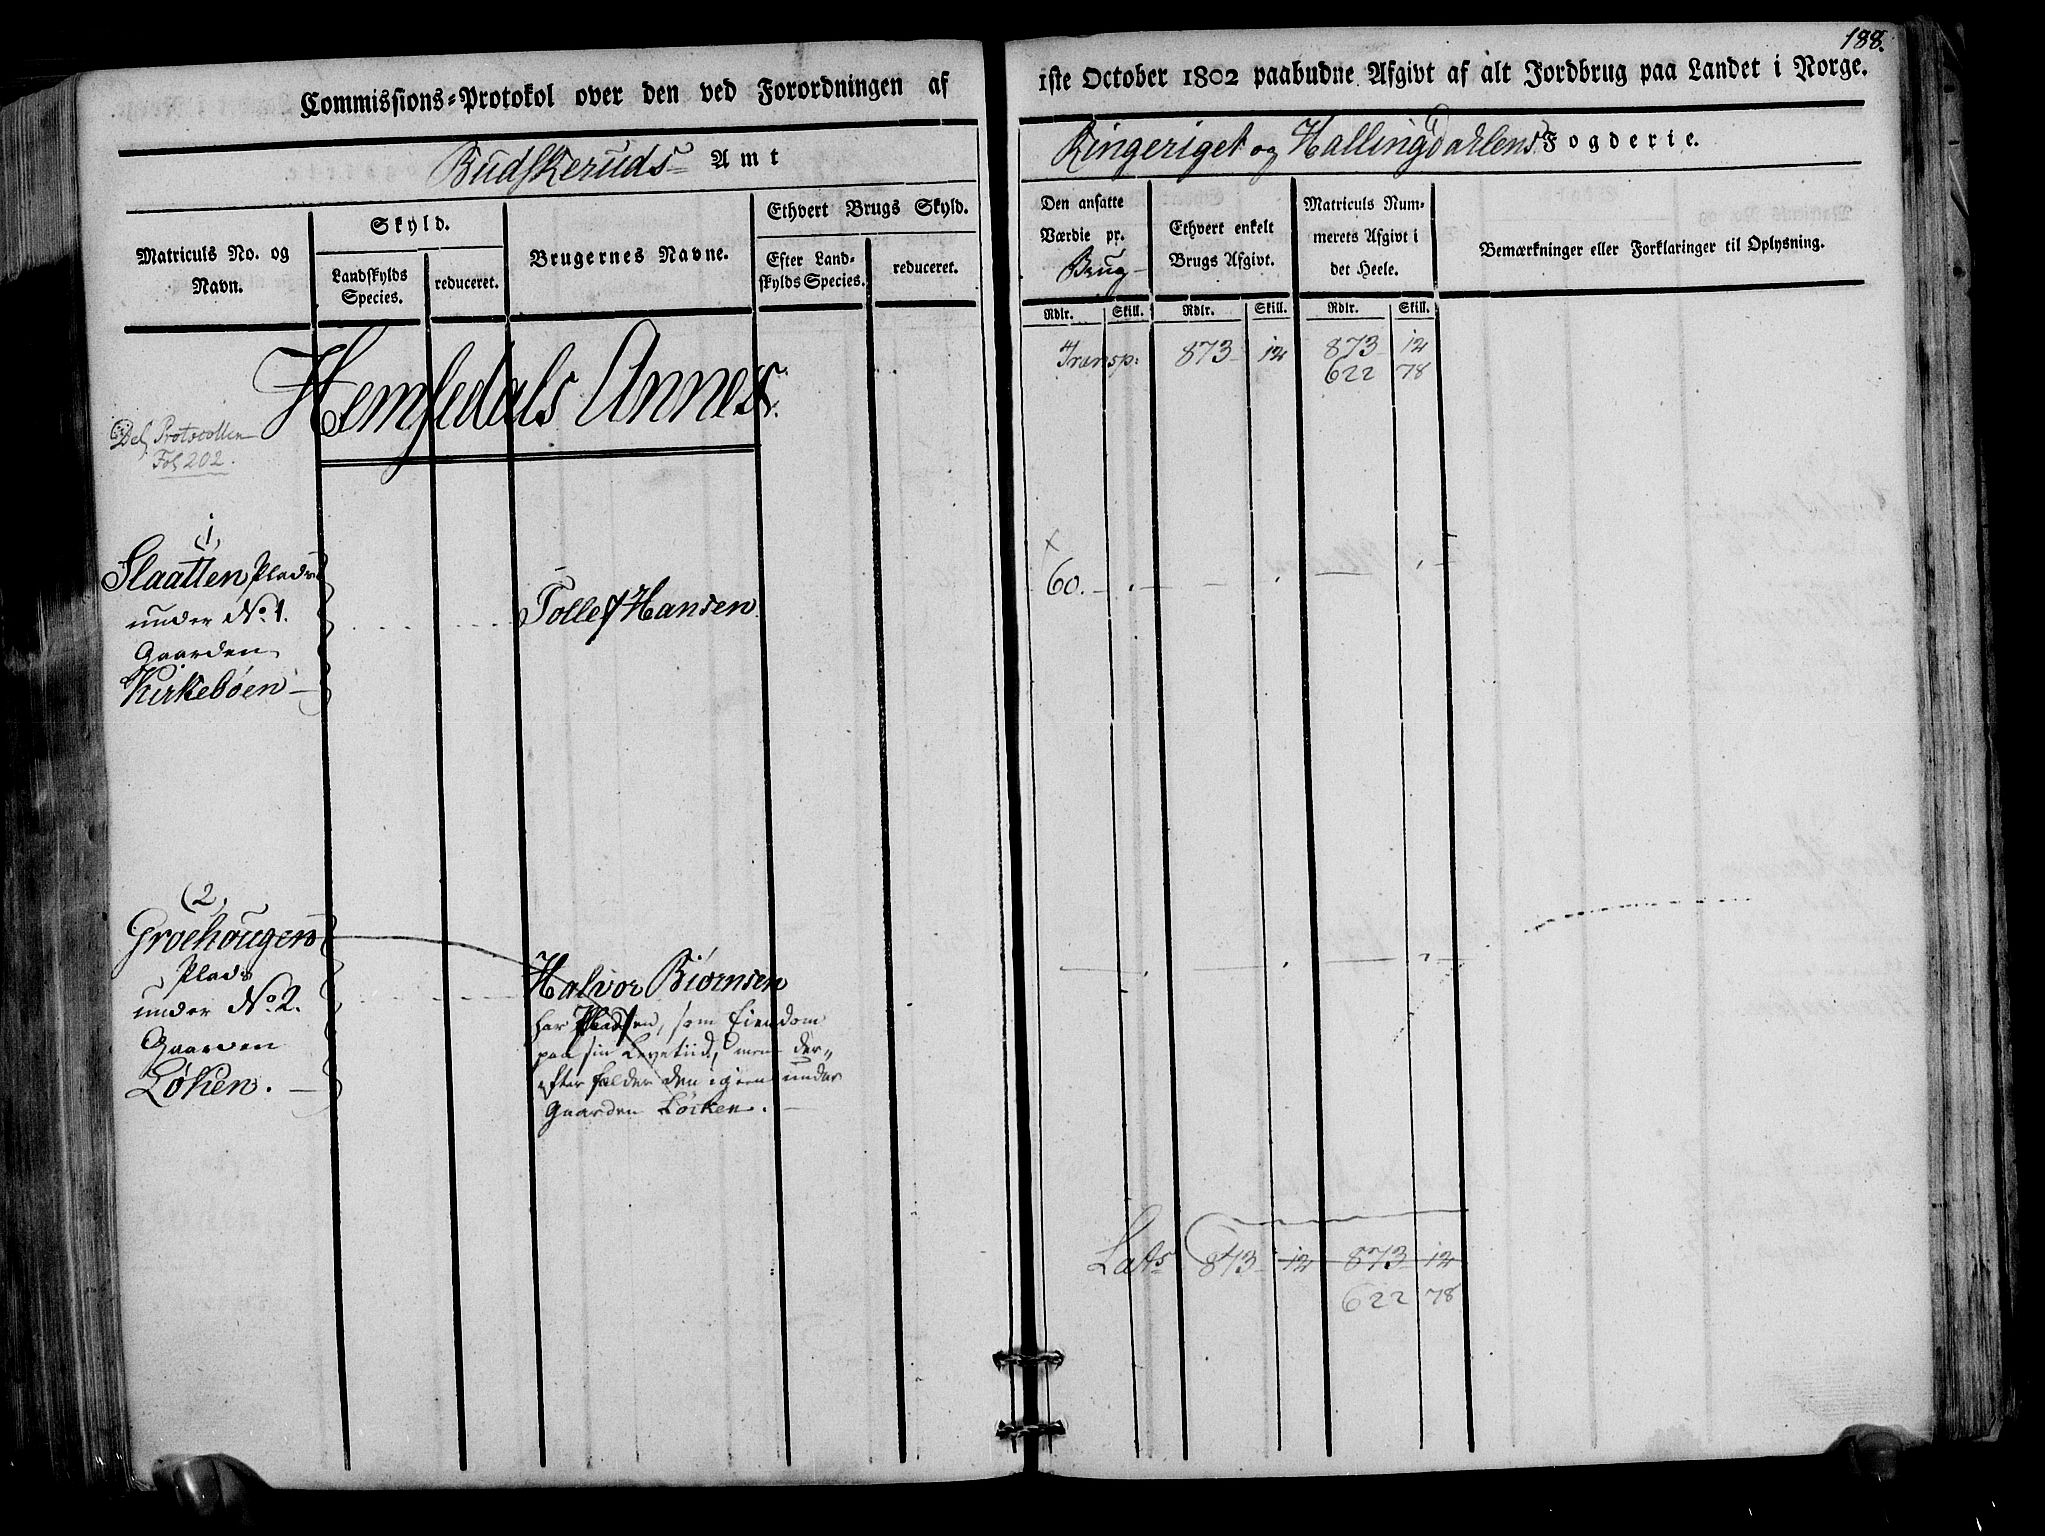 188.
Commissions-Protokol over den ved Forordningen af 1ste October 1802 paabudne Afgivt af alt Jordbrug paa Landet i Norge.
Budskeruds Amt
Ringeriget og Hallingdahlens Fogderie.
Matriculs No. og Navn.
Skyld.
Landskylds Species.
reduceret.
Brugernes Navne.
Ethvert Brugs Skyld.
Efter Landskylds Species.
reduceret.
Den ansatte Værdie pr. Brug
Ethvert enkelt Brugs Afgivt.
Matriculs Nummerets Afgivt i det Heele.
Bemærkninger eller Forklaringer til Oplysning.
Rdlr. Skill. Rdlr. Skill. Rdlr. Skill.
Hemsedals Annex.
Transp: 873 12 873 12
622 78
Del. Protocollen
Fol 202.
1,
Slaatten Plads
under No. 1.
Gaarden
Kirkebøen
Tollef Hansen
x
60.
(2,
Groehougen
Plads
under No. 2.
Gaarden
Løken.
Halvor Biørnsen
har Pladsen, som Eiendom
paa sin Levetiid, men der-
efter falder den igien under
Gaarden Løcken.
Lats 873 12 873 12
622 78